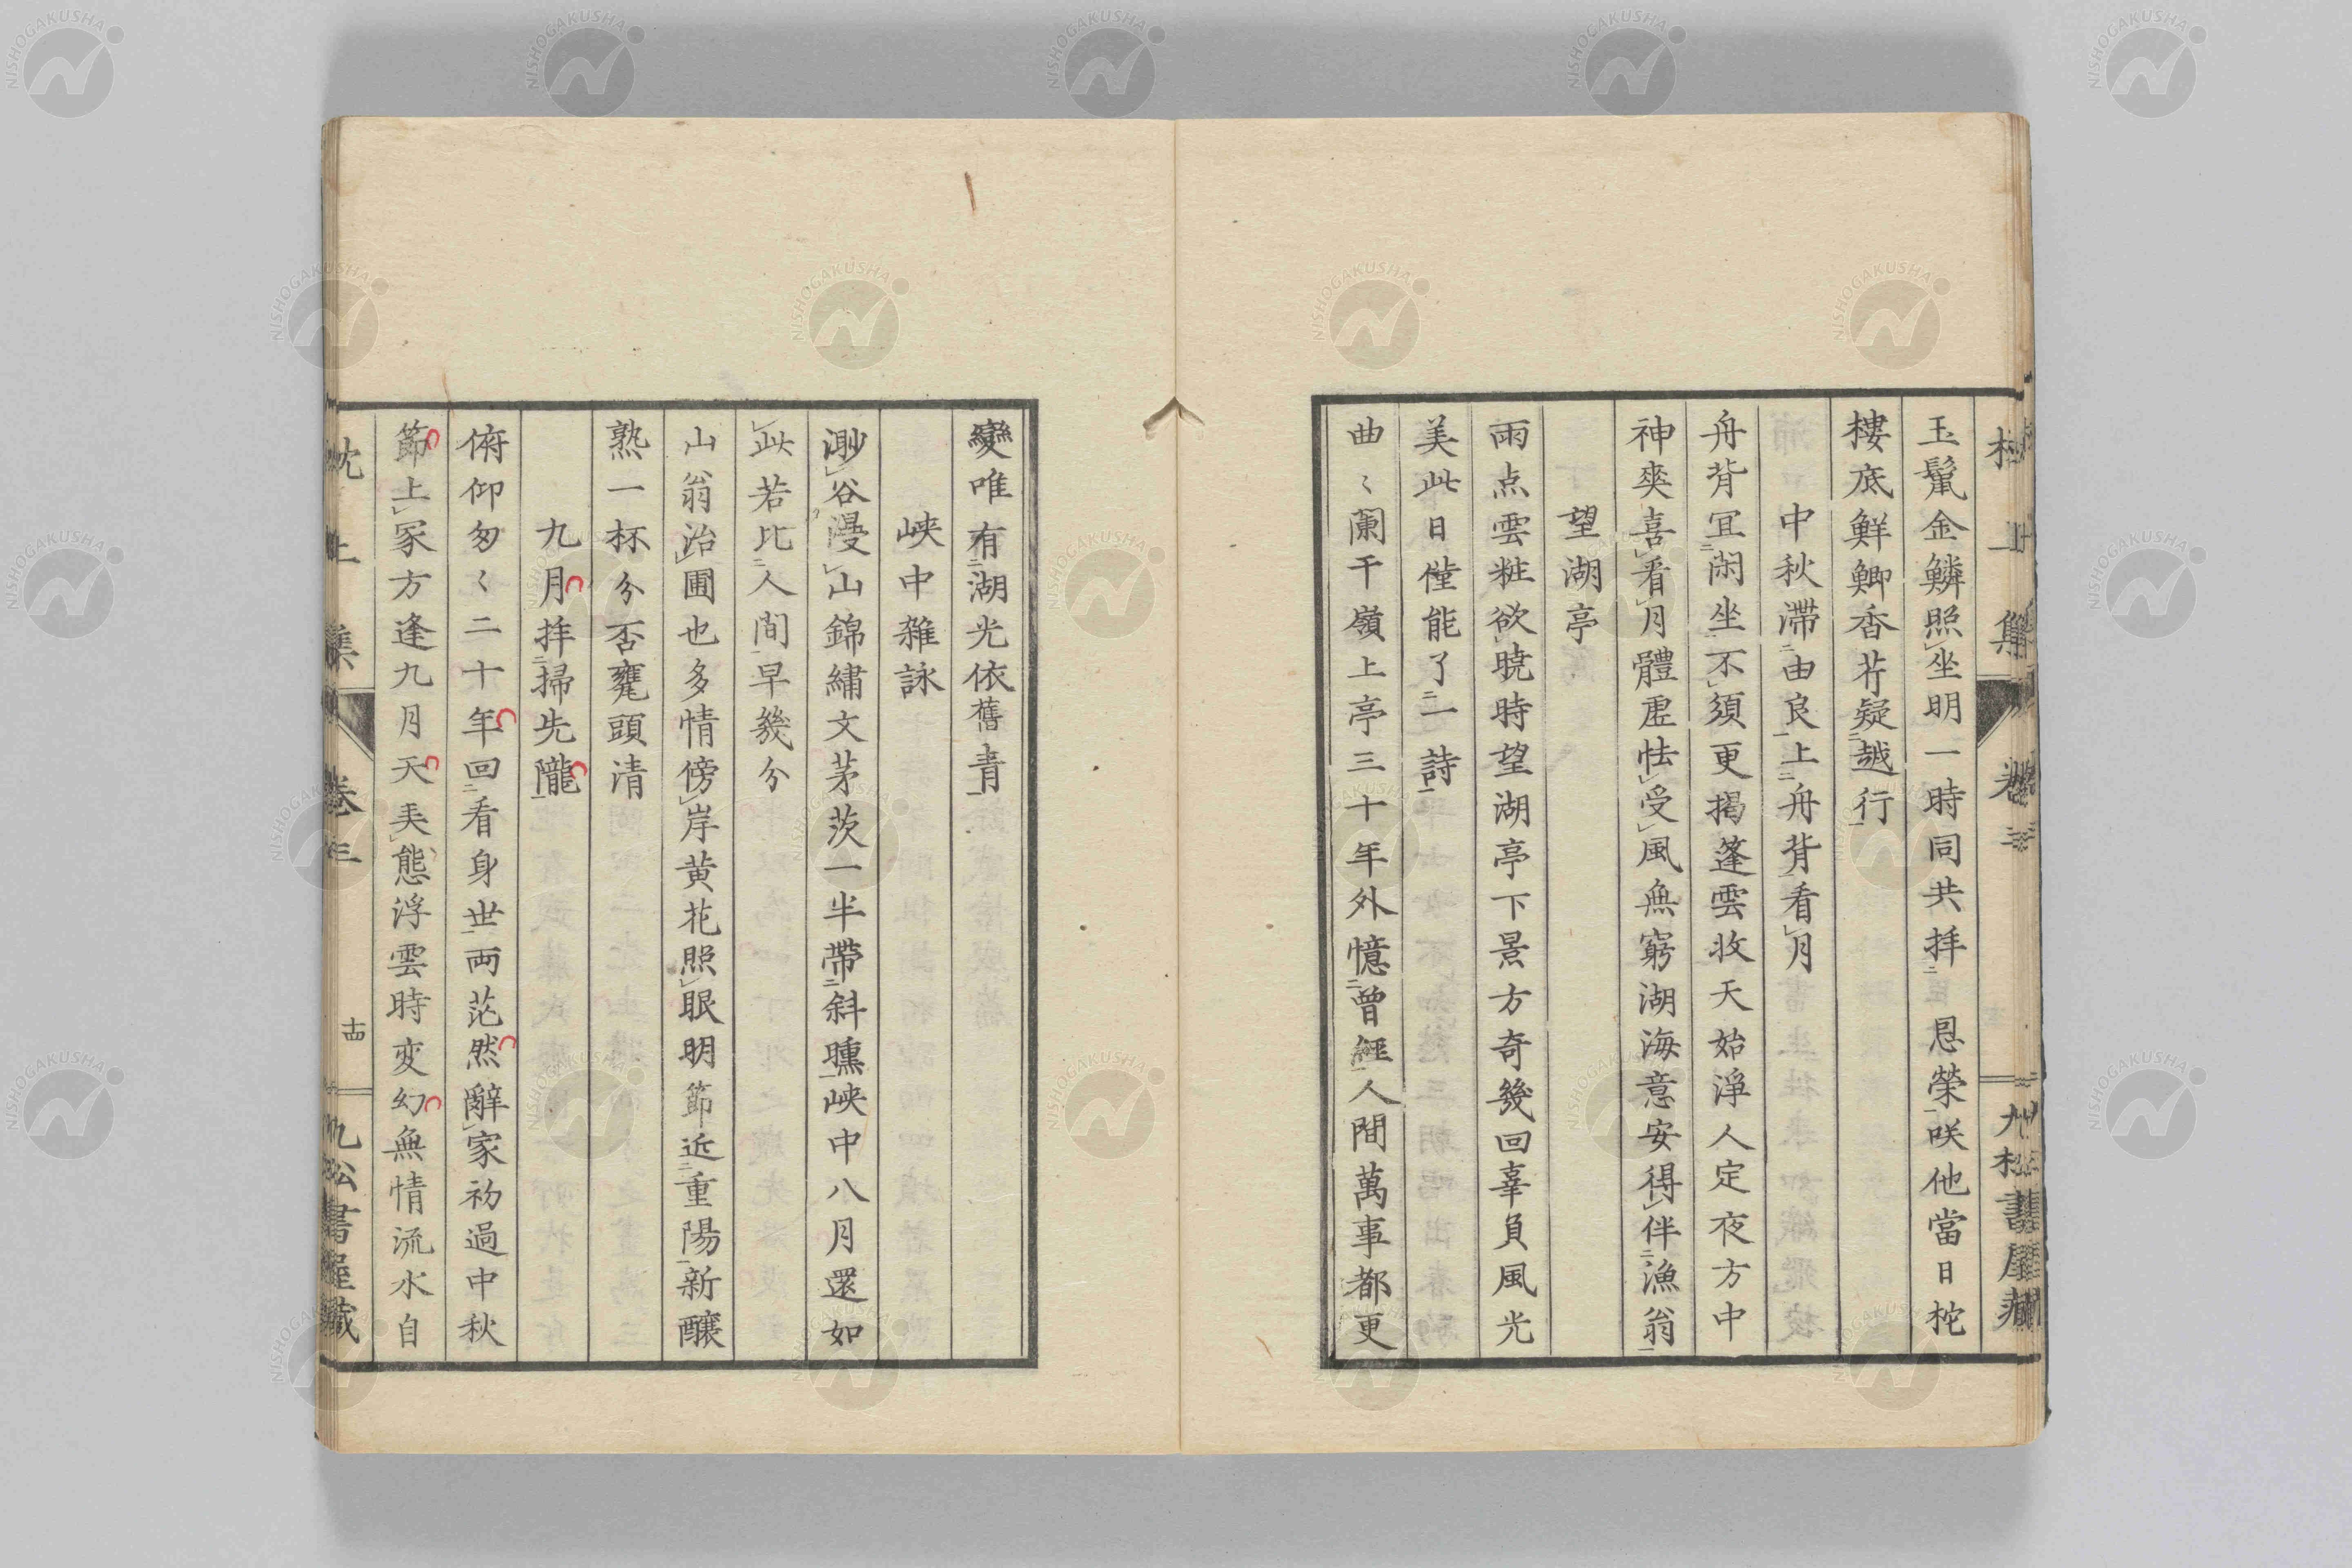 玉鬣金鱗照坐明一時同共拝恩榮咲他當日柁
樓底鮮鯽香芹疑越行
中秋滞由良上舟背看月
舟背冝閑坐不須更掲篷雲收天始淨人定夜方中
神爽喜看月體虚怯受風無窮湖海意安得伴漁翁
望湖亭
雨点雲粧欲曉時望湖亭下景方奇幾回辜負風光
美此日僅能了一詩
曲〻闌干嶺上亭三十年外憶曾經人間萬事都更
變唯有湖光依舊青
峡中雜詠
渺谷漫山錦繡文茅茨一半帶斜曛峡中八月還如
此若比人間早幾分
山翁治圃也多情傍岸黄花照眼明節近重陽新釀
熟一杯分否甕頭清
九月拝掃先隴
俯仰匆〻二十年回看身世両茫然辭家初過中秋
節上冢方逢九月天美態浮雲時変幻無情流水自
枕上集
卷三
十四
九松書屋藏
NISHOGAKUSHA